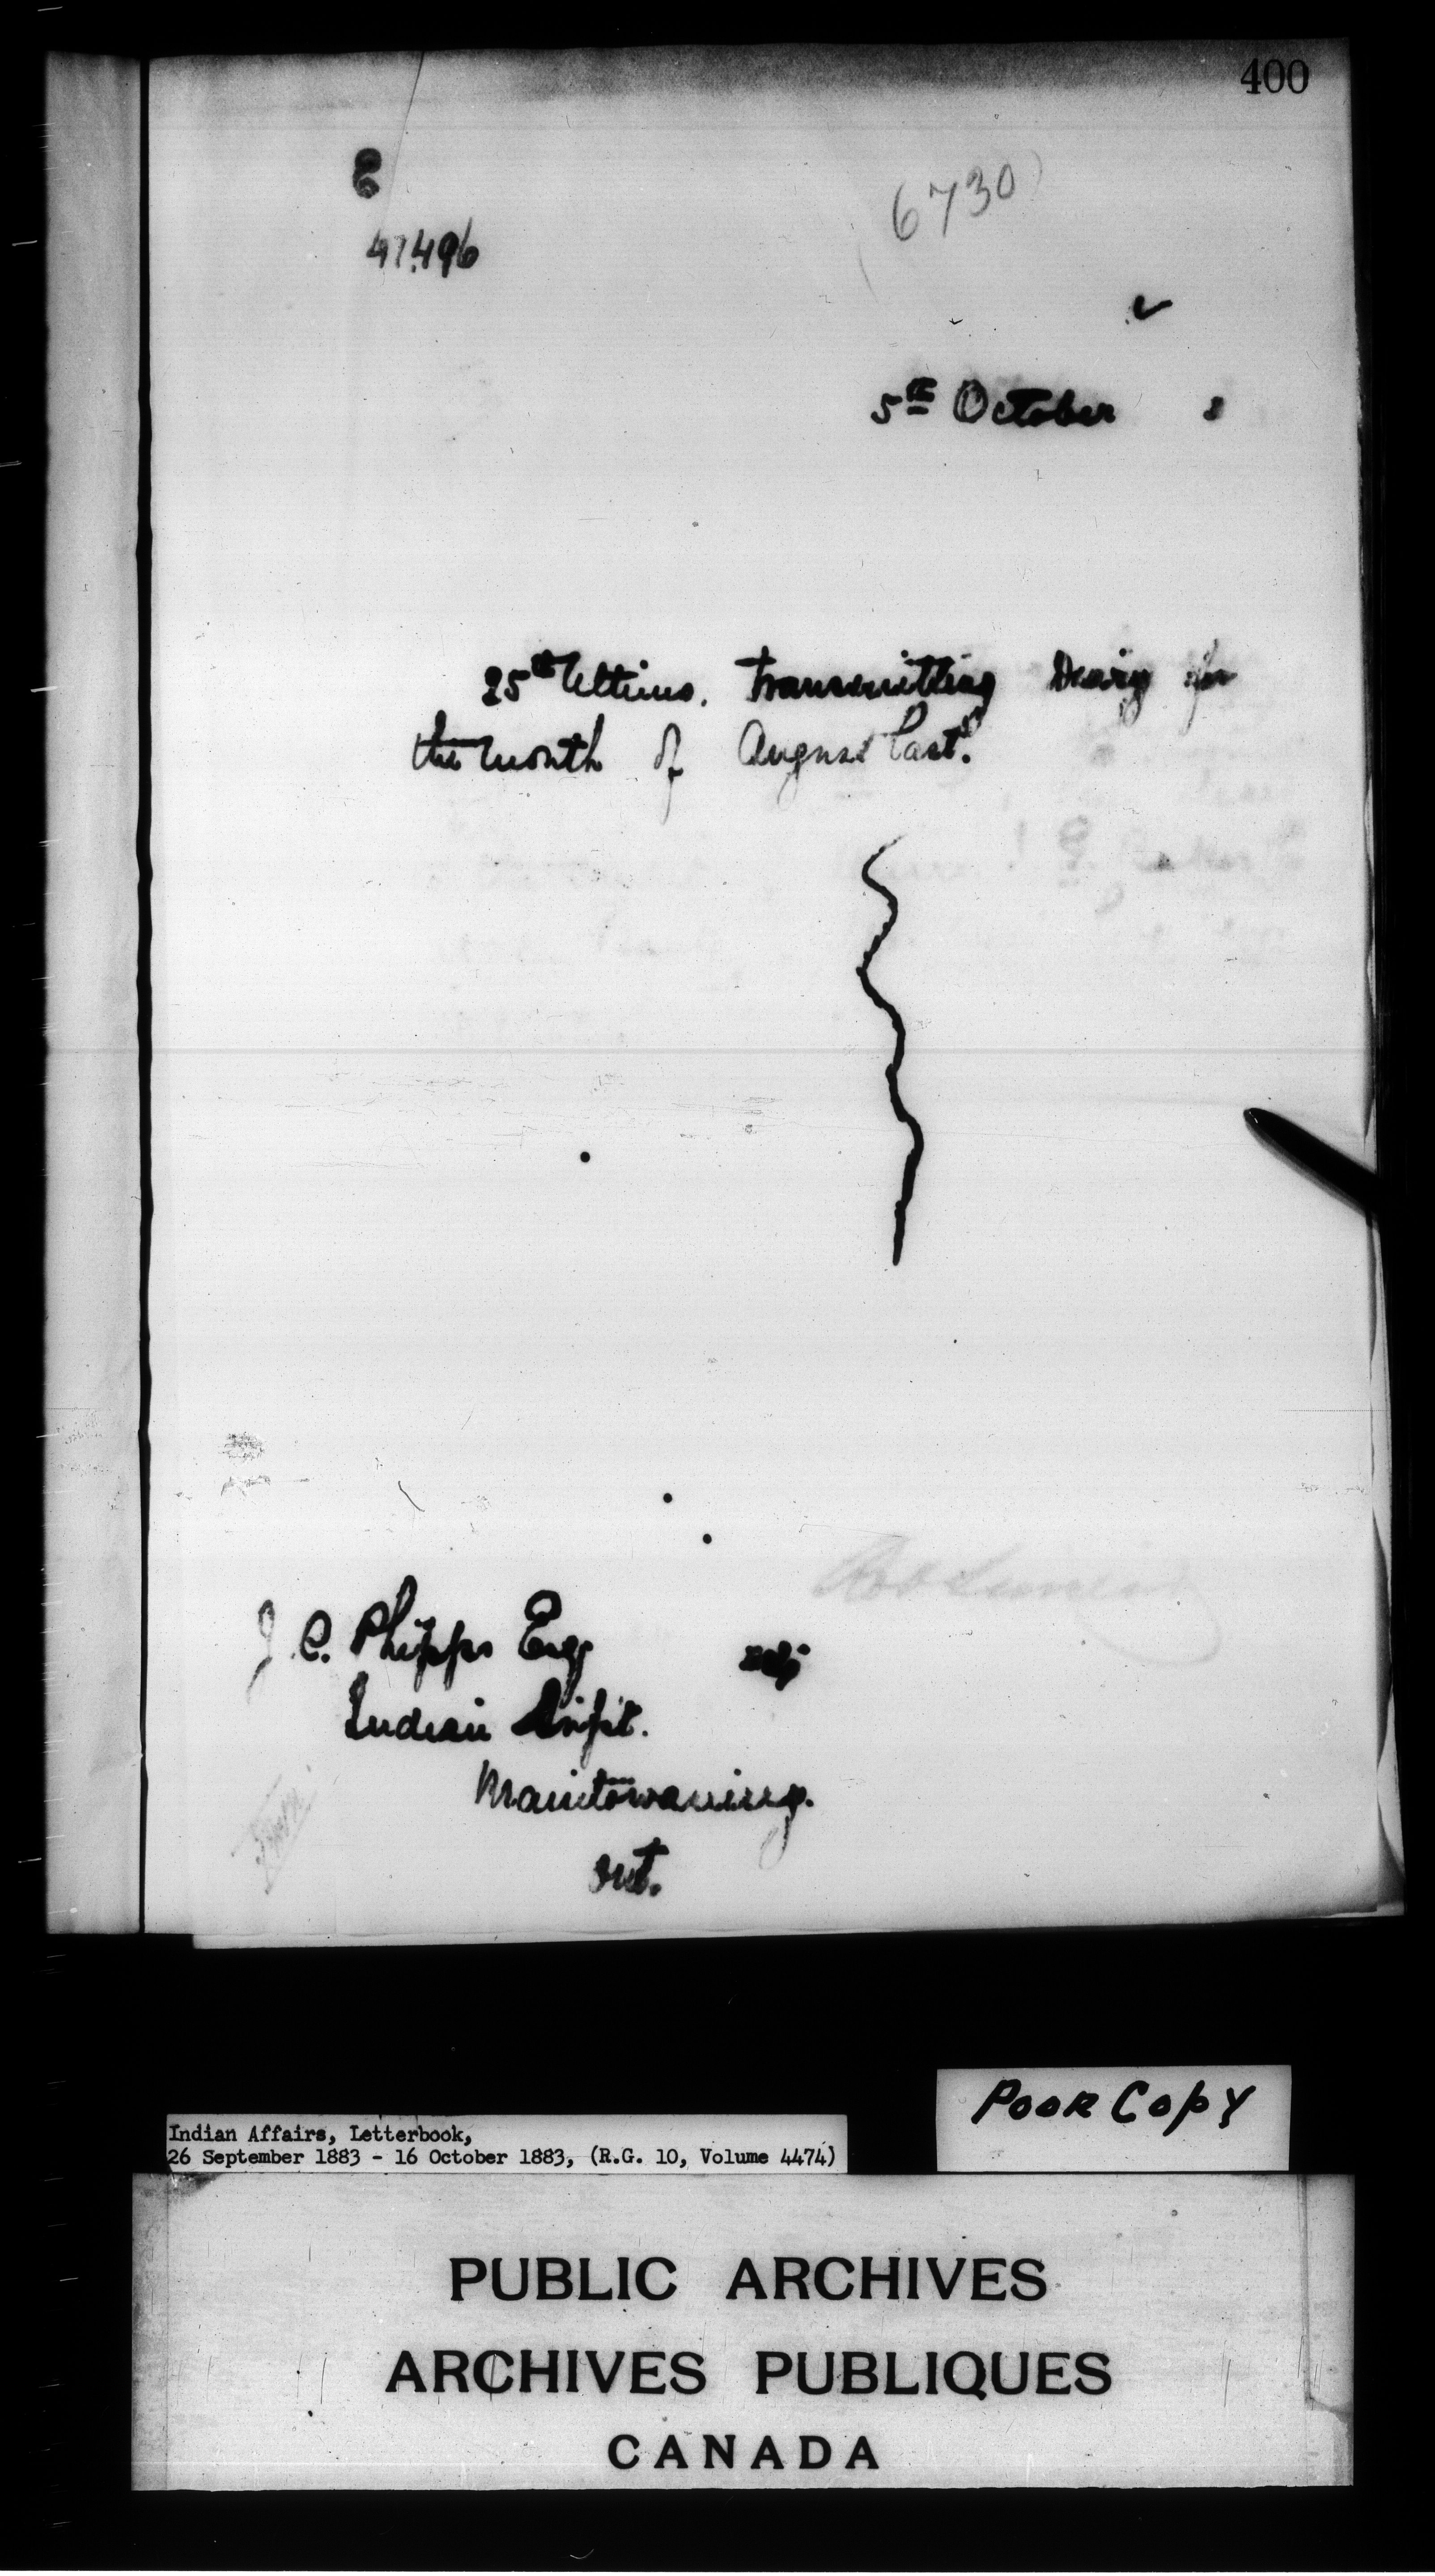 400
6730
47.496
5th October 3
25th Ultimo. Transmitting Diary for
the month of August last.
J. C. Phipps Esq
Indian Supt.
Manitowaning.
Ont.
POOR COPY
Indian Affairs, Letterbook,
26 September 1883 - 16 October 1883, (R.G. 10, Volume 4474)
PUBLIC ARCHIVES
ARCHIVES PUBLIQUES
CANADA